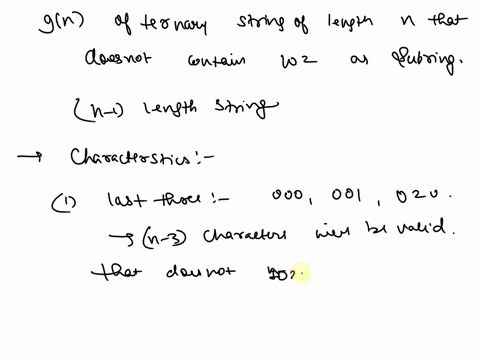 g(n) of ternary string of length n that
does not contain 102 as substring.
(n-1) length string
→ Characterstics:-
(1) last three:- 000, 001, 020.
→ (n-3) characters will be valid.
that does not